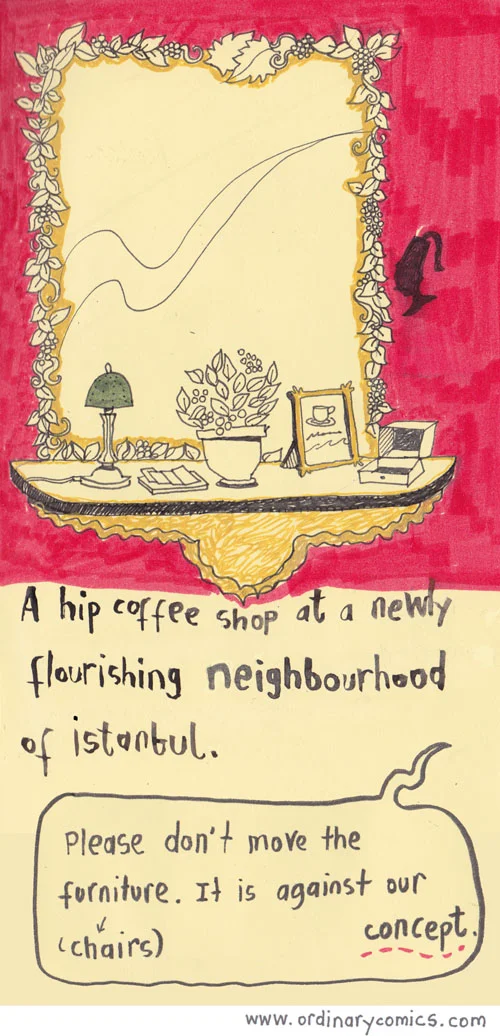 A hip coffee shop at a newly
flourishing neighbourhood
of istanbul.
Please don't move the
furniture. It is against our
(chairs) concept.
www.ordinarycomics.com